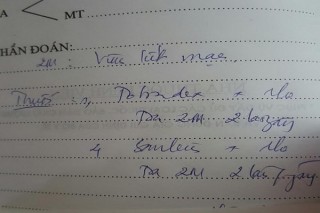 MT
CHẨN ĐOÁN:
2M: Viêm kết mạc
Thuốc: 1, Tobradex + 1lo
Tra 2M 2 lần/ngày
4 + 1lo
Tra 2M 2 lần/ngày